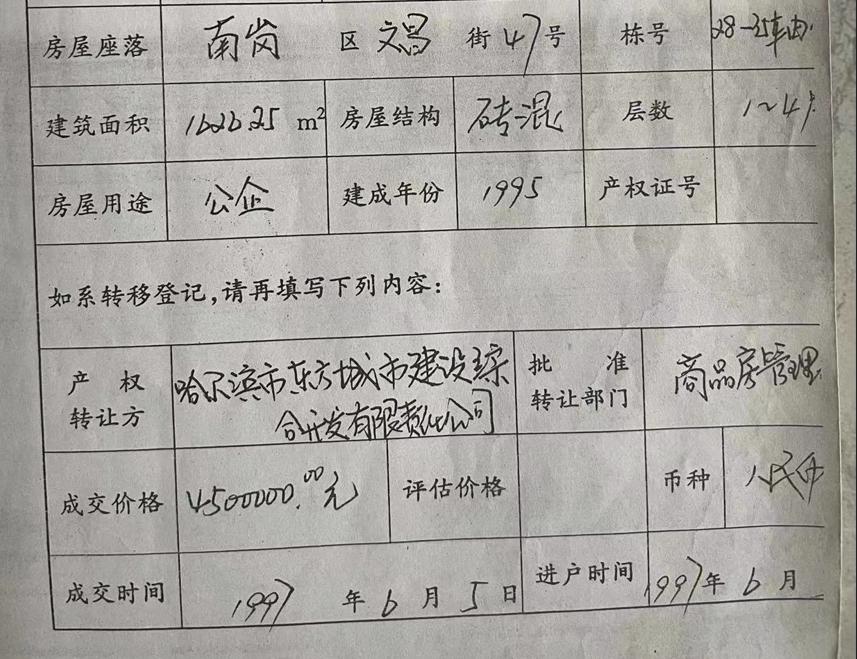 房屋座落 南岗 区 文昌 街 47 号 栋号 28-35车由
建筑面积 1626.25 m² 房屋结构 砖混 层数 1~4
房屋用途 公企 建成年份 1995 产权证号
如系转移登记,请再填写下列内容:
产权转让方 哈尔滨市东方城市建设综
合开发有限责任公司
批准
转让部门 商品房管理
成交价格 4500000.00元 评估价格 币种 人民币
成交时间 1997 年 6 月 5 日 进户时间 1997年 6 月